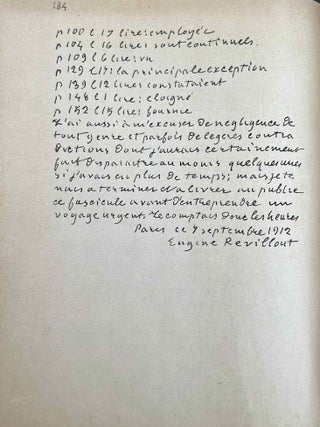 184
p 100 l 17 lire: employée
p 104 l 16 lire: sont continuels.
p 109 l 6 lire: vu
p 129 l 17: la principale exception
p 139 l 12 lire: constataient
p 148 l 1 lire: eloigné
p 152 l 15 lire: fournie
J'ai aussi à m'excuser de negligence de
tout genre et parfois de legeres contra
dictions dont j'aurais certainement
fait disparaitre au moins quelques unes
si j'avais eu plus de temps; mais je te
nais a terminer et a livrer au public
ce fascicule avant d'entreprendre un
voyage urgent. Je comptais donc les heures
Paris ce 7 septembre 1912
Eugène Revillout